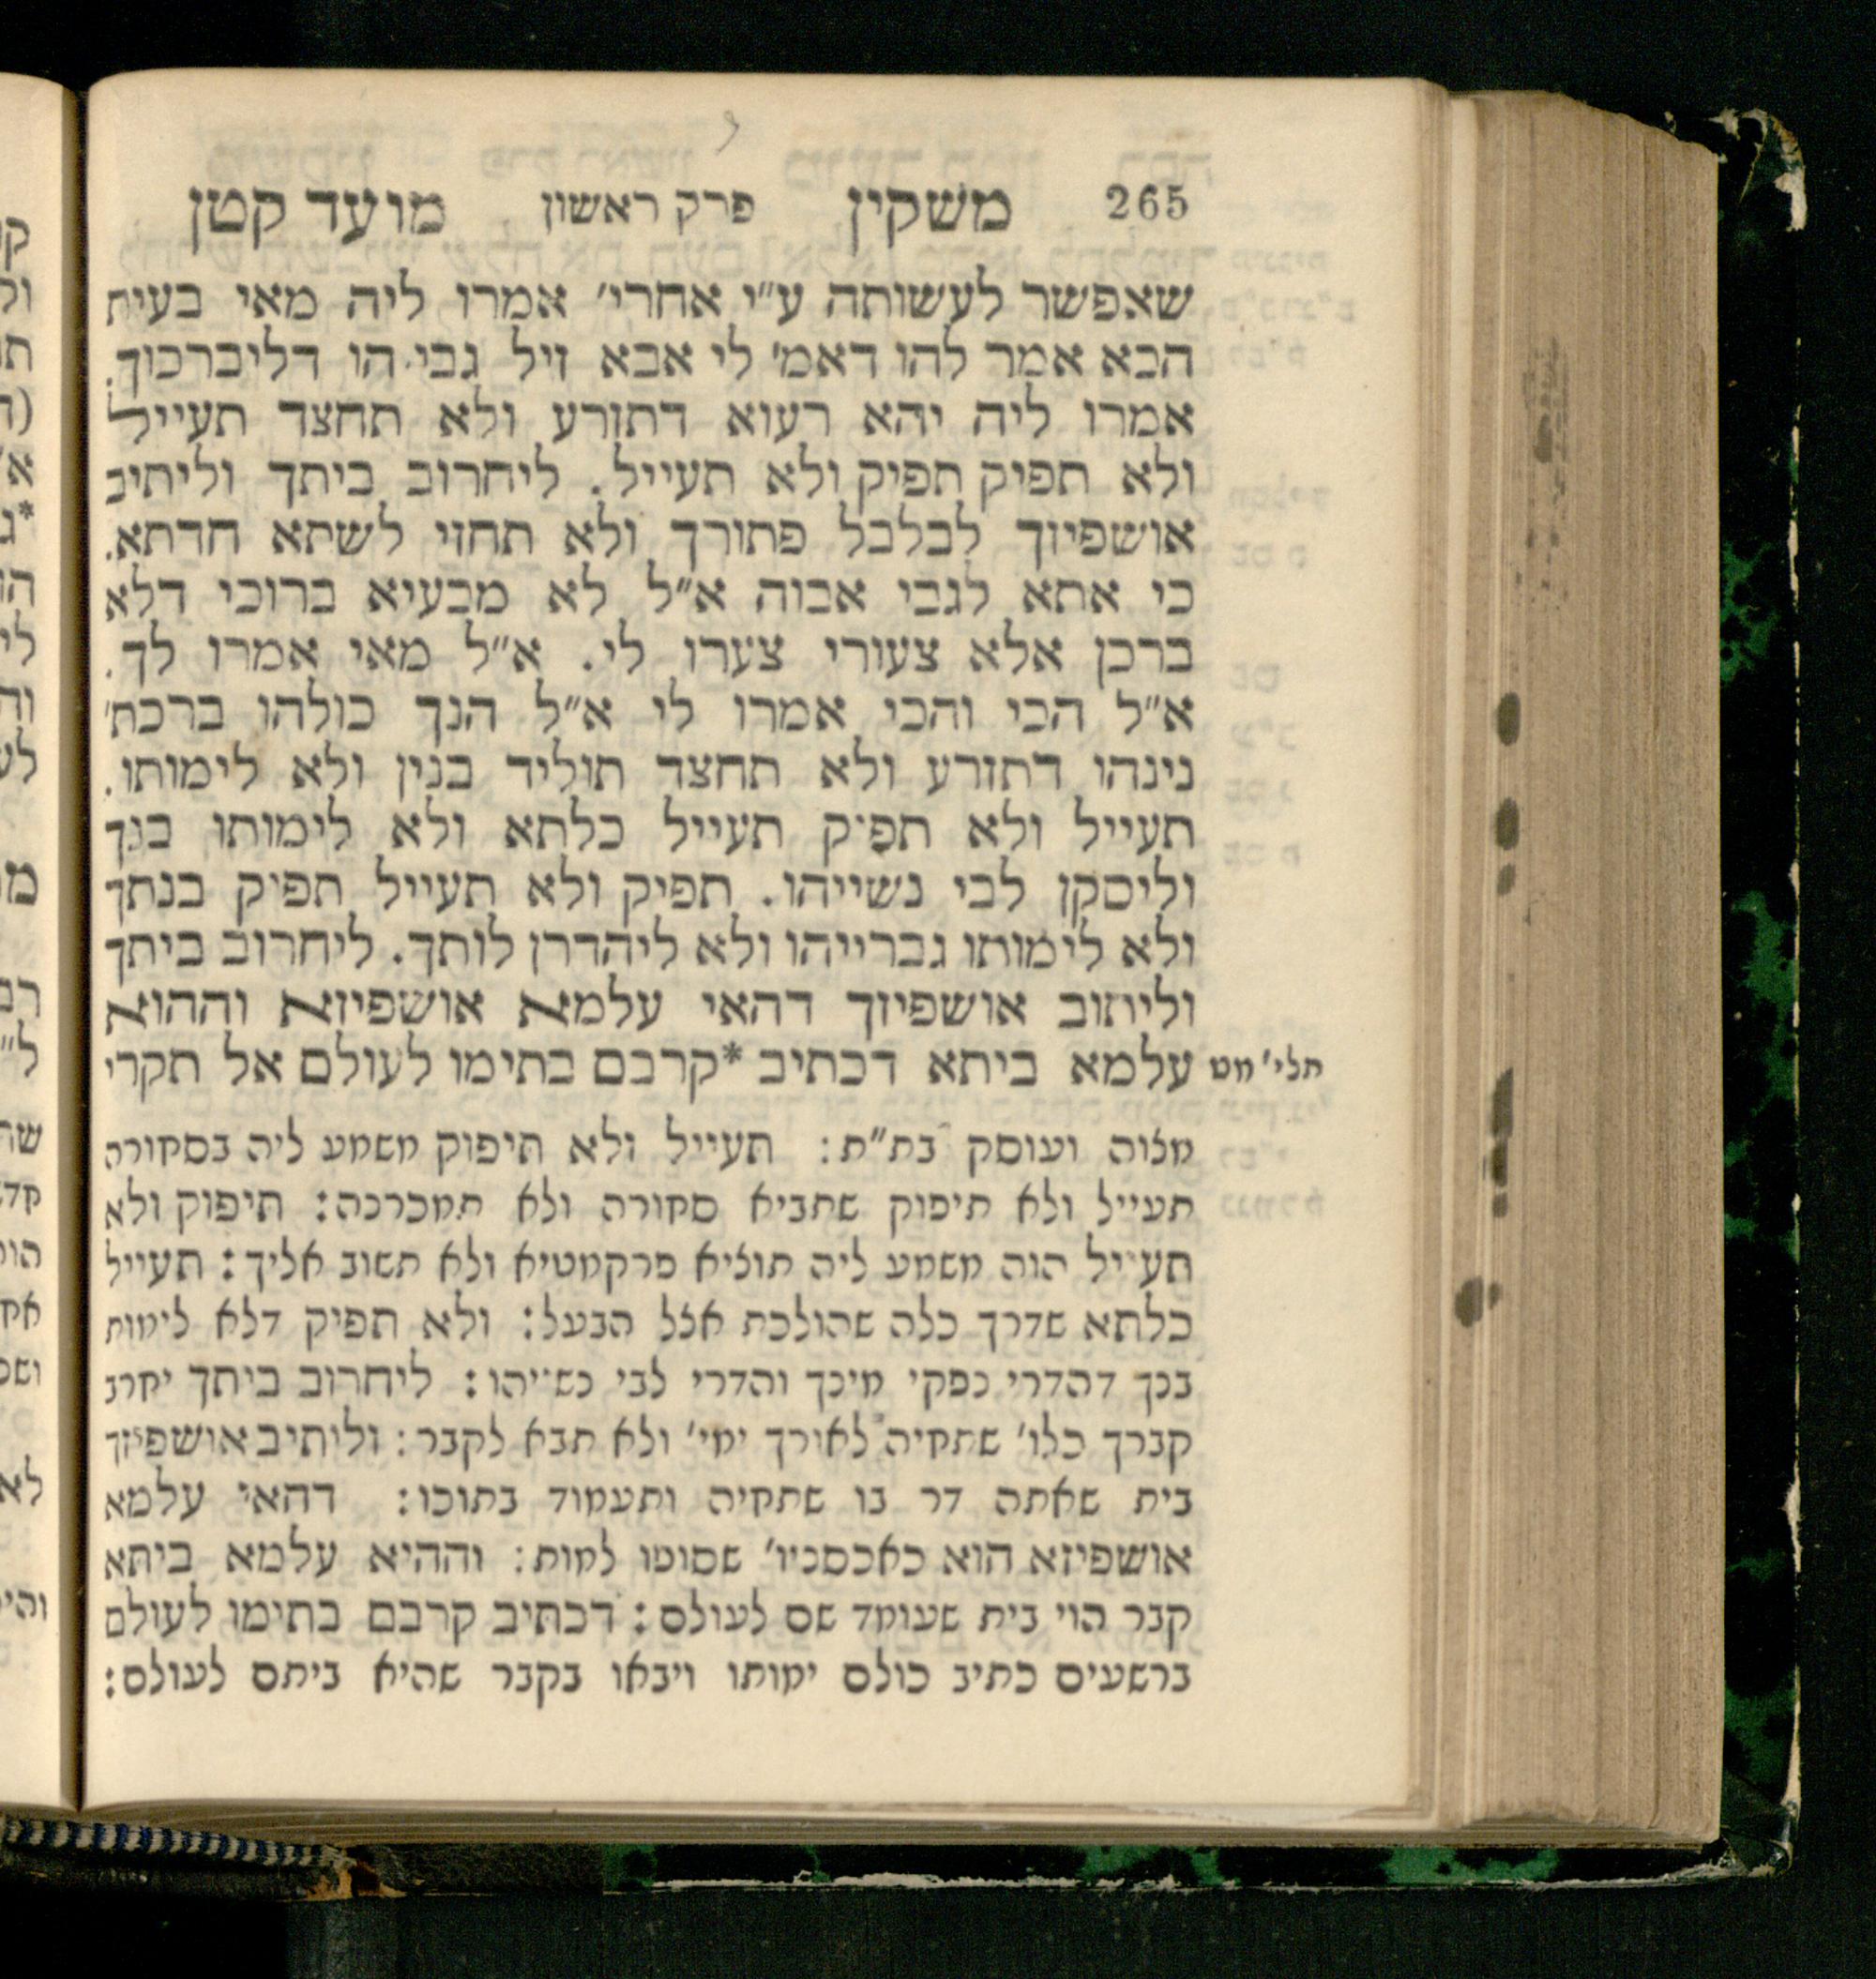 265 משקין פרק ראשון מועד קטן
שאפשר לעשותה ע״י אחרי׳ אמרו ליה מאי בעית
הכא אמר להו דאמ׳ לי אבא זיל גבי הו דליברכוך.
אמרו ליה יהא רעוא דתזרע ולא תחצד תעייל
ולא תפיק תפיק ולא תעייל. ליחרוב ביתך וליתיב
אושפיזך לבלבל פתורך ולא תחזי לשתא חדתא.
כי אתא לגבי אבוה א״ל לא מבעיא ברוכי דלא
ברכן אלא צעורי צערו לי. א״ל מאי אמרו לך.
א״ל הכי והכי אמרו לי א״ל הנך כולהו ברכת׳
נינהו דתזרע ולא תחצד תוליד בנין ולא לימותו.
תעייל ולא תפיק תעייל כלתא ולא לימותו בנך
וליסקן לבי נשייהו. תפיק ולא תעייל תפיק בנתך
ולא לימותו גברייהו ולא ליהדרן לותך. ליחרוב ביתך
וליתוב אושפיזך דהאי עלמא אושפיזא וההוא
תלי׳ מט עלמא ביתא דכתיב *קרבם בתימו לעולם אל תקרי
מצוה ועוסק בת״ת: תעייל ולא תיפוק משמע ליה בסחורה
תעייל ולא תיפוק שתביא סחורה ולא תמכרנה: תיפוק ולא
תעייל הוה משמע ליה תוציא פרקמטיא ולא תשוב אליך: תעייל
כלתא שדרך כלה שהולכת אצל הבעל: ולא תפיק דלא לימות
בנך דהדרי נפקי מינך והדרי לבי נשייהו: ליחרוב ביתך יחרב
קברך כלו׳ שתחיה לאורך ימי׳ ולא תבא לקבר: וליתיב אושפיזך
בית שאתה דר בו שתחיה ותעמוד בתוכו: דהאי עלמא
אושפיזא הוא כאכסניו׳ שסופו למות: וההיא עלמא ביתא
קבר הוי בית שעומד שם לעולם: דכתיב קרבם בתימו לעולם
ברשעים כתיב כולם ימותו ויבאו בקבר שהיא ביתם לעולם: